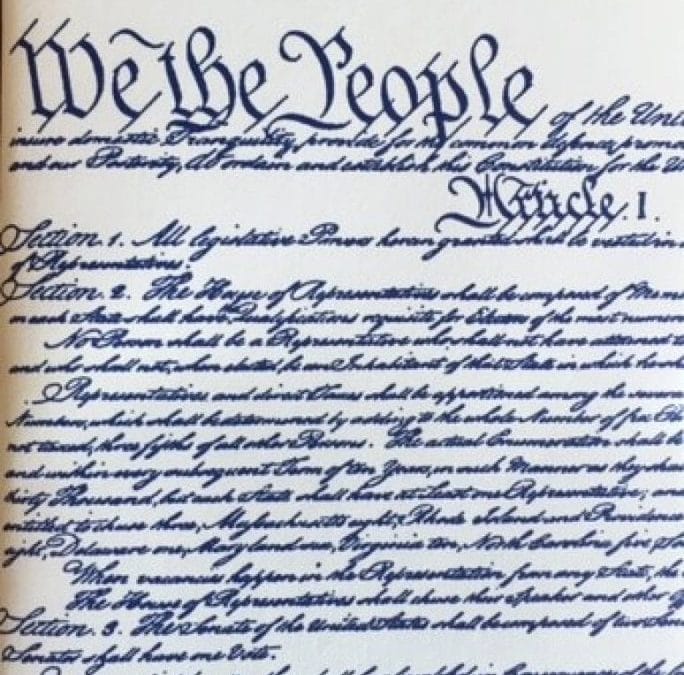 We the People of the Unit
insure domestic Tranquility, provide for the common defence, promo
and our Posterity, do ordain and establish this Constitution for the U
Article. I.
Section. 1. All legislative Powers herein granted shall be vested in
of Representatives.
Section. 2. The House of Representatives shall be composed of Mem
in each State shall have Qualifications requisite for Electors of the most numero
No Person shall be a Representative who shall not have attained t
and who shall not, when elected, be an Inhabitant of that State in which he sh
Representatives and direct Taxes shall be apportioned among the sever
Numbers, which shall be determined by adding to the whole Number of free Pe
not taxed, three fifths of all other Persons. The actual Enumeration shall be
and within every subsequent Term of ten Years, in such Manner as they shal
thirty Thousand, but each State shall have at Least one Representative; and
entitled to chuse three, Massachusetts eight, Rhode Island and Providence
eight, Delaware one, Maryland six, Virginia ten, North Carolina five, So
When vacancies happen in the Representation from any State, the
The House of Representatives shall chuse their Speaker and other O
Section. 3. The Senate of the United States shall be composed of two Sena
Senator shall have one Vote.